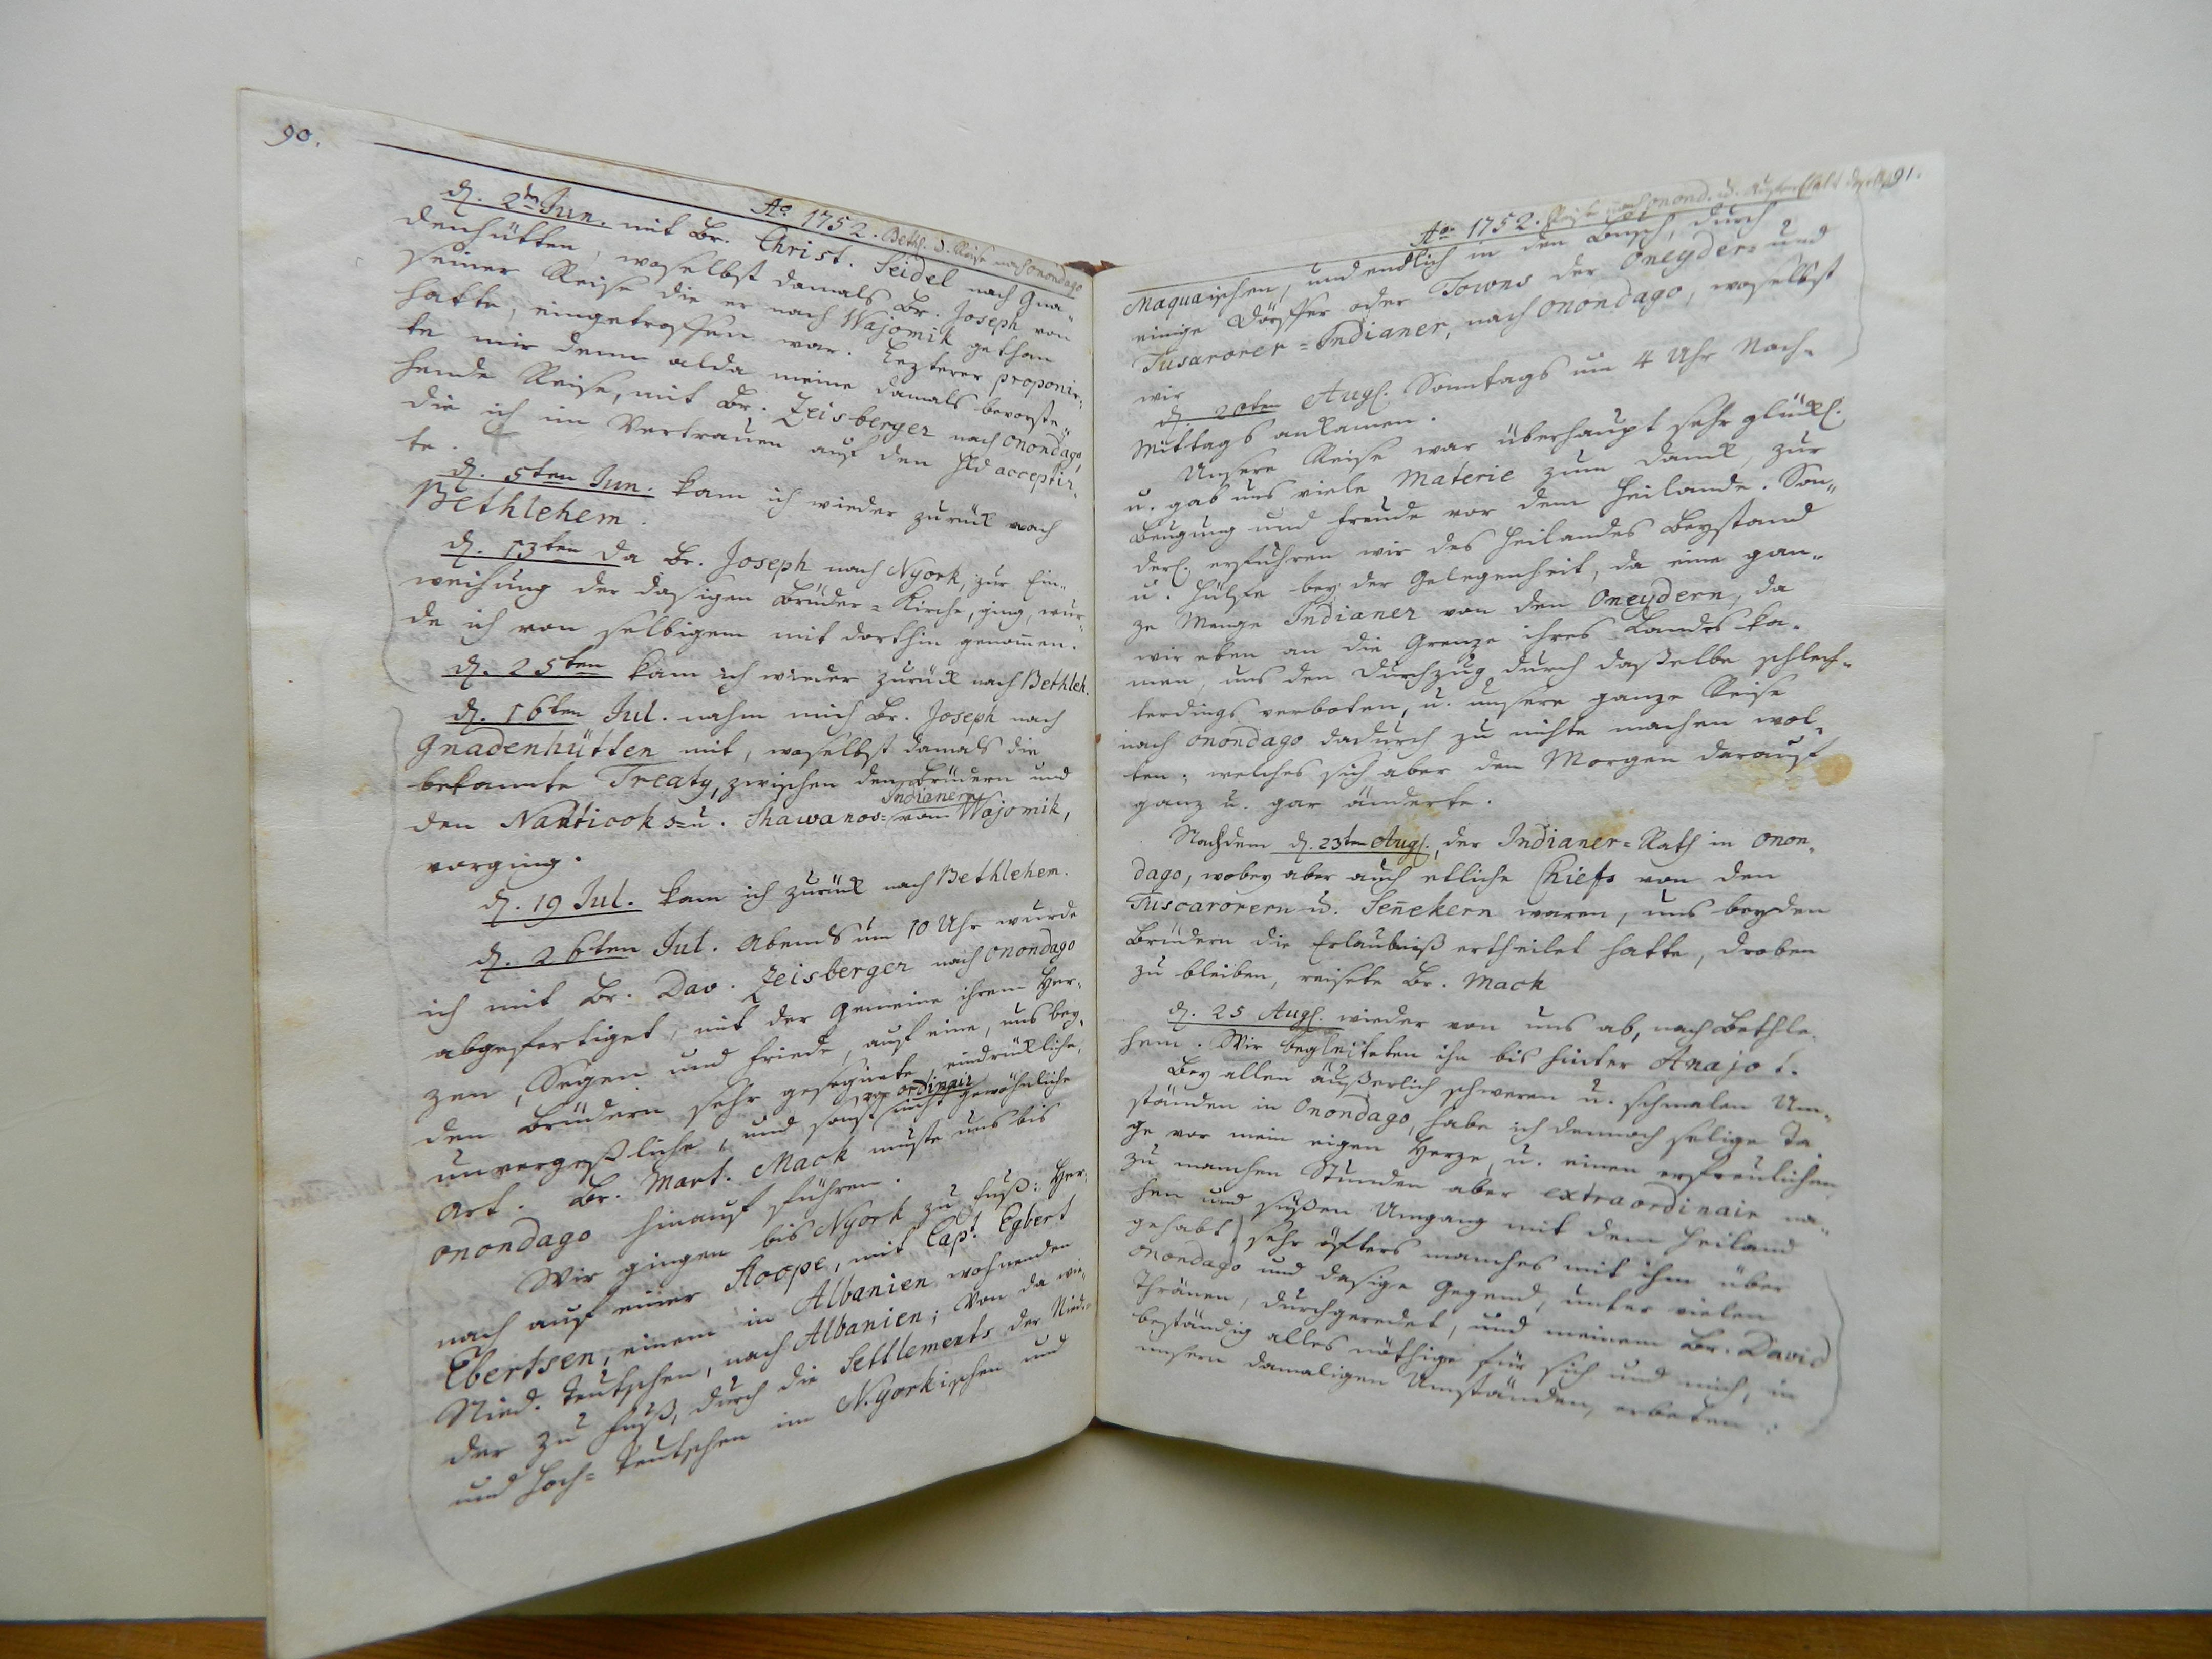 90.
Ao. 1752. Bethl. u. Reise nach Onondago
d. 2ten Jun. mit Br. Christ. Seidel nach Gna-
denhütten, woselbst damals Br. Joseph von
seiner Reise die er nach Wajomik gethan
hatte, eingetroffen war. Lezterer proponir-
te mir denn alda meine damals bevorste-
hende Reise, mit Br. Zeisberger nach Onondago,
die ich im Vertrauen auf den Hld acceptir-
te.
d. 5ten Jun. kam ich wieder zurück nach
Bethlehem.
d. 13ten da Br. Joseph nach NYork, zur Ein-
weihung der dasigen Brüder=Kirche, ging, wur-
de ich von selbigem mit dorthin genom̄en.
d. 25ten kam ich wieder zurück nach Bethleh.
d. 16ten Jul. nahm mich Br. Joseph nach
Gnadenhütten mit, woselbst damals die
bekannte Treaty, zwischen den Brüdern und
den Nanticoks= u. Shawanos= Indianern von Wajomik,
vorging.
d. 19 Jul. kam ich zurück nach Bethlehem.
d. 26ten Jul. Abends um 10 Uhr wurde
ich mit Br. Dav. Zeisberger nach Onondago
abgefertiget, mit der Gemeine ihrem Her-
zen, Segen und Friede, auf eine, uns bey-
den Brüdern sehr gesegnete eindrückliche,
unvergeßliche, und sonst nicht ordinair gewöhnliche
Art. Br. Mart. Mack muste uns bis
Onondago hinauf führen.
Wir gingen bis NYork zu Fuß: Her-
nach auf einer Sloope, mit Capt. Egbert
Ebertsen, einem in Albanien wohnenden
Nied. Teutschen, nach Albanien; Von da wie-
der zu Fuß, durch die Settlements der Nied.=
und Hoch=Teutschen im N.Yorkischen und
91.
Ao. 1752. Reise nach Onond. u. Aufenthalt daselbst
Maquaischen, und endlich in den Busch, durch
einige Dörffer oder Towns der Oneyder= und
Tusarorer=Indianer, nach Onondago, woselbst
wir
d. 20ten Augl. Sonntags um 4 Uhr Nach-
mittags ankamen.
Unsere Reise war überhaupt sehr glückl.
u. gab uns viele Materie zum Dank, zur
Beugung und Freude vor dem Heilande. Son-
derl. erfuhren wir des Heilandes Beystand
u. Hülfe bey der Gelegenheit, da eine gan-
ze Menge Indianer von den Oneydern, da
wir eben an die Grenze ihres Landes ka-
men, uns den Durchzug durch daßelbe schlech-
terdings verboten, u. unsere ganze Reise
nach Onondago dadurch zu nichte machen wol-
ten; welches sich aber den Morgen darauf
ganz u. gar änderte.
Nachdem d. 23ten Augl., der Indianer=Rath in Onon-
dago, wobey aber auch etliche Chiefs von den
Tuscarorern u. Sen̄ekern waren, uns beyden
Brüdern die Erlaubniß ertheilet hatte, droben
zu bleiben, reisete Br. Mack
d. 25 Augl. wieder von uns ab, nach Bethle-
hem. Wir begleiteten ihn bis hinter Anajot.
Bey allen äußerlich schweren u. schmalen Um-
ständen in Onondago, habe ich dennoch selige Ta-
ge vor mein eigen Herze, u. einen erfreulichen
zu manchen Stunden aber extraordinair na-
hen und süßen Umgang mit dem Heiland
gehabt, sehr öfters manches mit ihm über
Onondago und dasige Gegend, unter vielen
Thränen, durchgeredet, und meinem Br. David
beständig alles nöthige für sich und mich, in
unsern damaligen Umständen, erbeten.